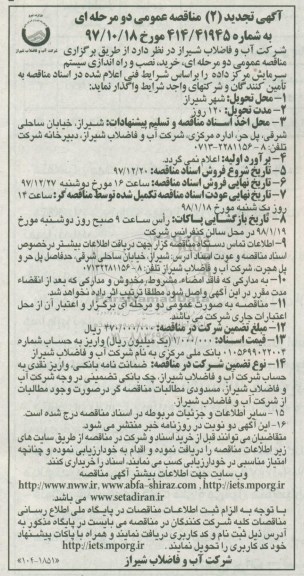 آگهی تجدید (۲) مناقصه عمومی دو مرحله ای
به شماره ۴۱۴/۴۱۹۴۵ مورخ ۹۷/۱۰/۱۸
شرکت آب و فاضلاب شیراز
شرکت آب و فاضلاب شیراز در نظر دارد از طریق برگزاری
مناقصه عمومی دو مرحله ای، خرید، نصب و راه اندازی سیستم
سرمایش مرکز داده را براساس شرایط فنی اعلام شده در اسناد مناقصه به
تأمین کنندگان و شرکتهای واجد شرایط واگذار نماید:
۱- محل تحویل: شهر شیراز
۲- مدت تحویل: ۱۲۰ روز
۳- محل اخذ اسناد مناقصه و تسلیم پیشنهادات: شیراز، خیابان ساحلی
شرقی، پل حر، اداره مرکزی، شرکت آب و فاضلاب شیراز، دبیرخانه شرکت
تلفن: ۸-۳۲۲۸۱۱۵۶-۰۷۱۳
۴- برآورد اولیه: اعلام نمی گردد.
۵- تاریخ شروع فروش اسناد مناقصه: ۹۷/۱۲/۲۰
۶- تاریخ نهایی فروش اسناد مناقصه: ساعت ۱۶ مورخ دوشنبه ۹۷/۱۲/۲۷
۷- تاریخ نهایی عودت اسناد مناقصه تکمیل شده توسط مناقصه گر: ساعت ۱۴
روز یک شنبه مورخ ۹۸/۱/۱۸
۸- تاریخ بازگشایی پاکات: رأس ساعت ۹ صبح روز دوشنبه مورخ
۹۸/۱/۱۹ در محل سالن کنفرانس شرکت
۹- اطلاعات تماس دستگاه مناقصه گزار جهت دریافت اطلاعات بیشتر در خصوص
اسناد مناقصه و عودت اسناد آدرس: شیراز، خیابان ساحلی شرقی، حدفاصل پل حر و
پل هجرت، شرکت آب و فاضلاب شیراز تلفن: ۸-۰۷۱۳۲۲۸۱۱۵۶
۱۰- به مدارکی که فاقد امضاء، مشروط، مخدوش و مدارکی که بعد از انقضاء
مدت مقرر در این آگهی واصل شود مطلقا ترتیب اثر داده نخواهد شد.
۱۱- مناقصه به صورت عمومی دو مرحله ای برگزار و اعتبار آن از محل
اعتبارات جاری شرکت می باشد.
۱۲- مبلغ تضمین شرکت در مناقصه: ۴۷۰/۰۰۰/۰۰۰ ریال
۱۳- قیمت اسناد: ۱/۰۰۰/۰۰۰ (یک میلیون ریال) واریز به حساب شماره
۰۱۰۵۶۹۹۰۲۲۰۰۳ بانک ملی مرکزی به نام شرکت آب و فاضلاب شیراز
۱۴- نوع تضمین شرکت در مناقصه: ضمانت نامه بانکی، واریز نقدی به
حساب شرکت آب و فاضلاب شیراز، چک بانکی تضمینی در وجه شرکت آب
و فاضلاب شیراز، مسدودی مطالبات مناقصه گر در صورت وجود مطالبات
از شرکت آب و فاضلاب شیراز.
۱۵- سایر اطلاعات و جزئیات مربوطه در اسناد مناقصه درج شده است.
۱۶- این آگهی دو نوبت در روزنامه خبر منتشر می شود.
متقاضیان می توانند قبل از خرید اسناد و شرکت در مناقصه از طریق سایت های
زیر اطلاعات مناقصه را دریافت نموده و اقدام به خودارزیابی نموده و چنانچه
امتیاز مناسبی در خودارزیابی کسب می نمایند، اسناد را خریداری کنند.
وب سایت جهت اطلاعات بیشتر آگهی مناقصه
http://www.nww.ir, www.abfa-shiraz.com , http://iets.mporg.ir
www.setadiran.ir می باشد.
با توجه به الزام ثبت اطلاعات مناقصات در پایگاه ملی اطلاع رسانی
مناقصات کلیه شرکت کنندگان در مناقصه می بایست در پایگاه مذکور به
آدرس ذیل ثبت نام و کد کاربری دریافت نمایند و همراه با پاکات پیشنهاد
خود کد کاربری را تحویل نمایند. http://iets.mporg.ir
شرکت آب و فاضلاب شیراز